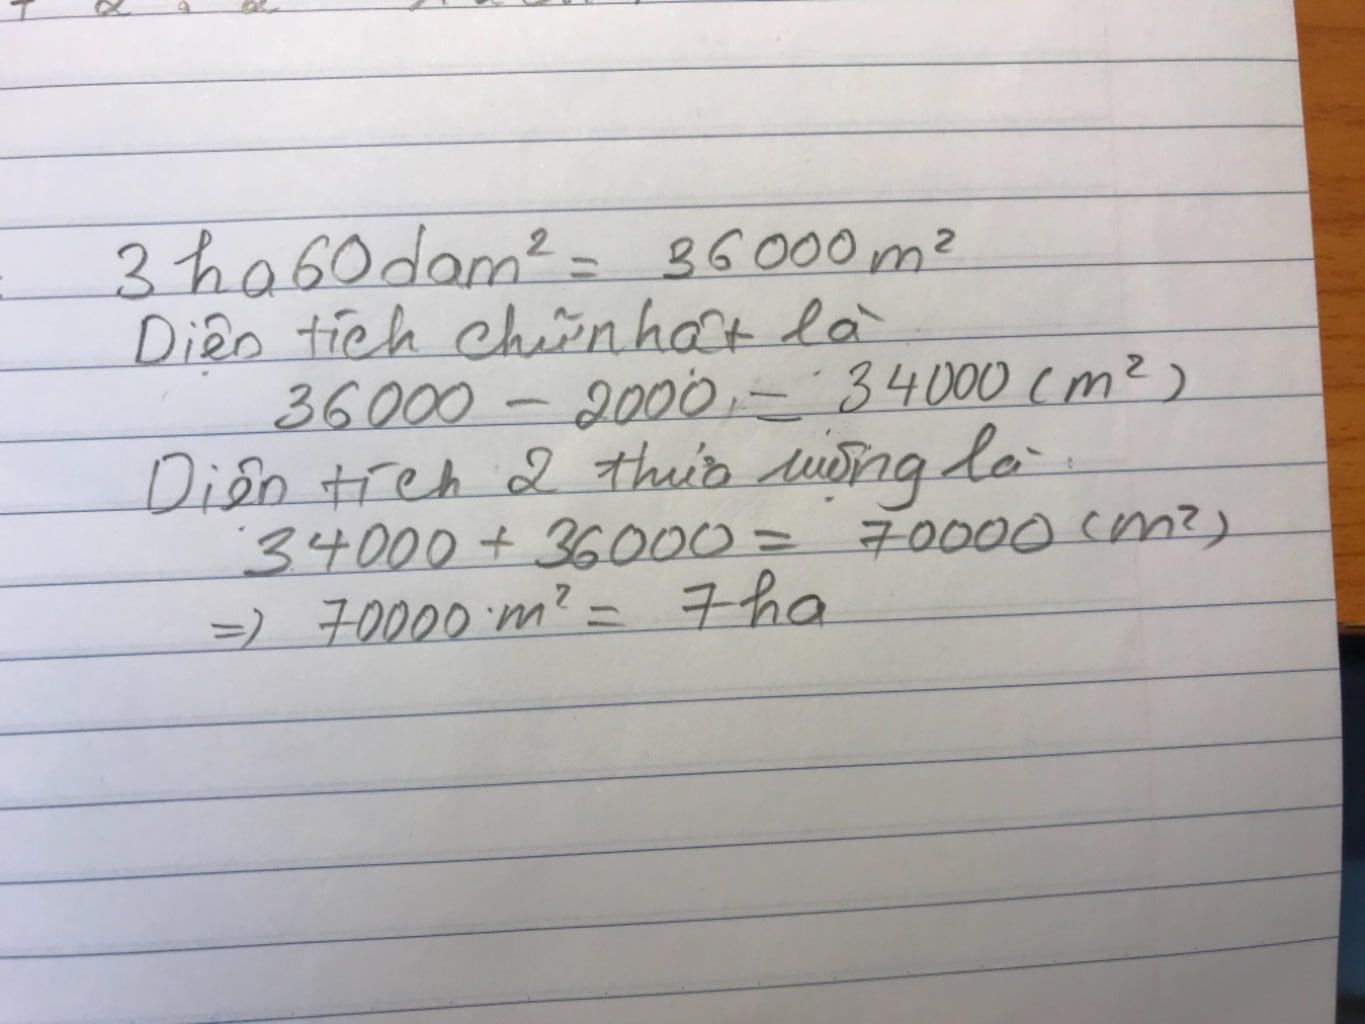 3 ha 60 dam² = 36000 m²
Diện tích chữ nhật là
36000 - 2000 = 34000 (m²)
Diện tích 2 thửa ruộng là
34000 + 36000 = 70000 (m²)
=> 70000 m² = 7 ha